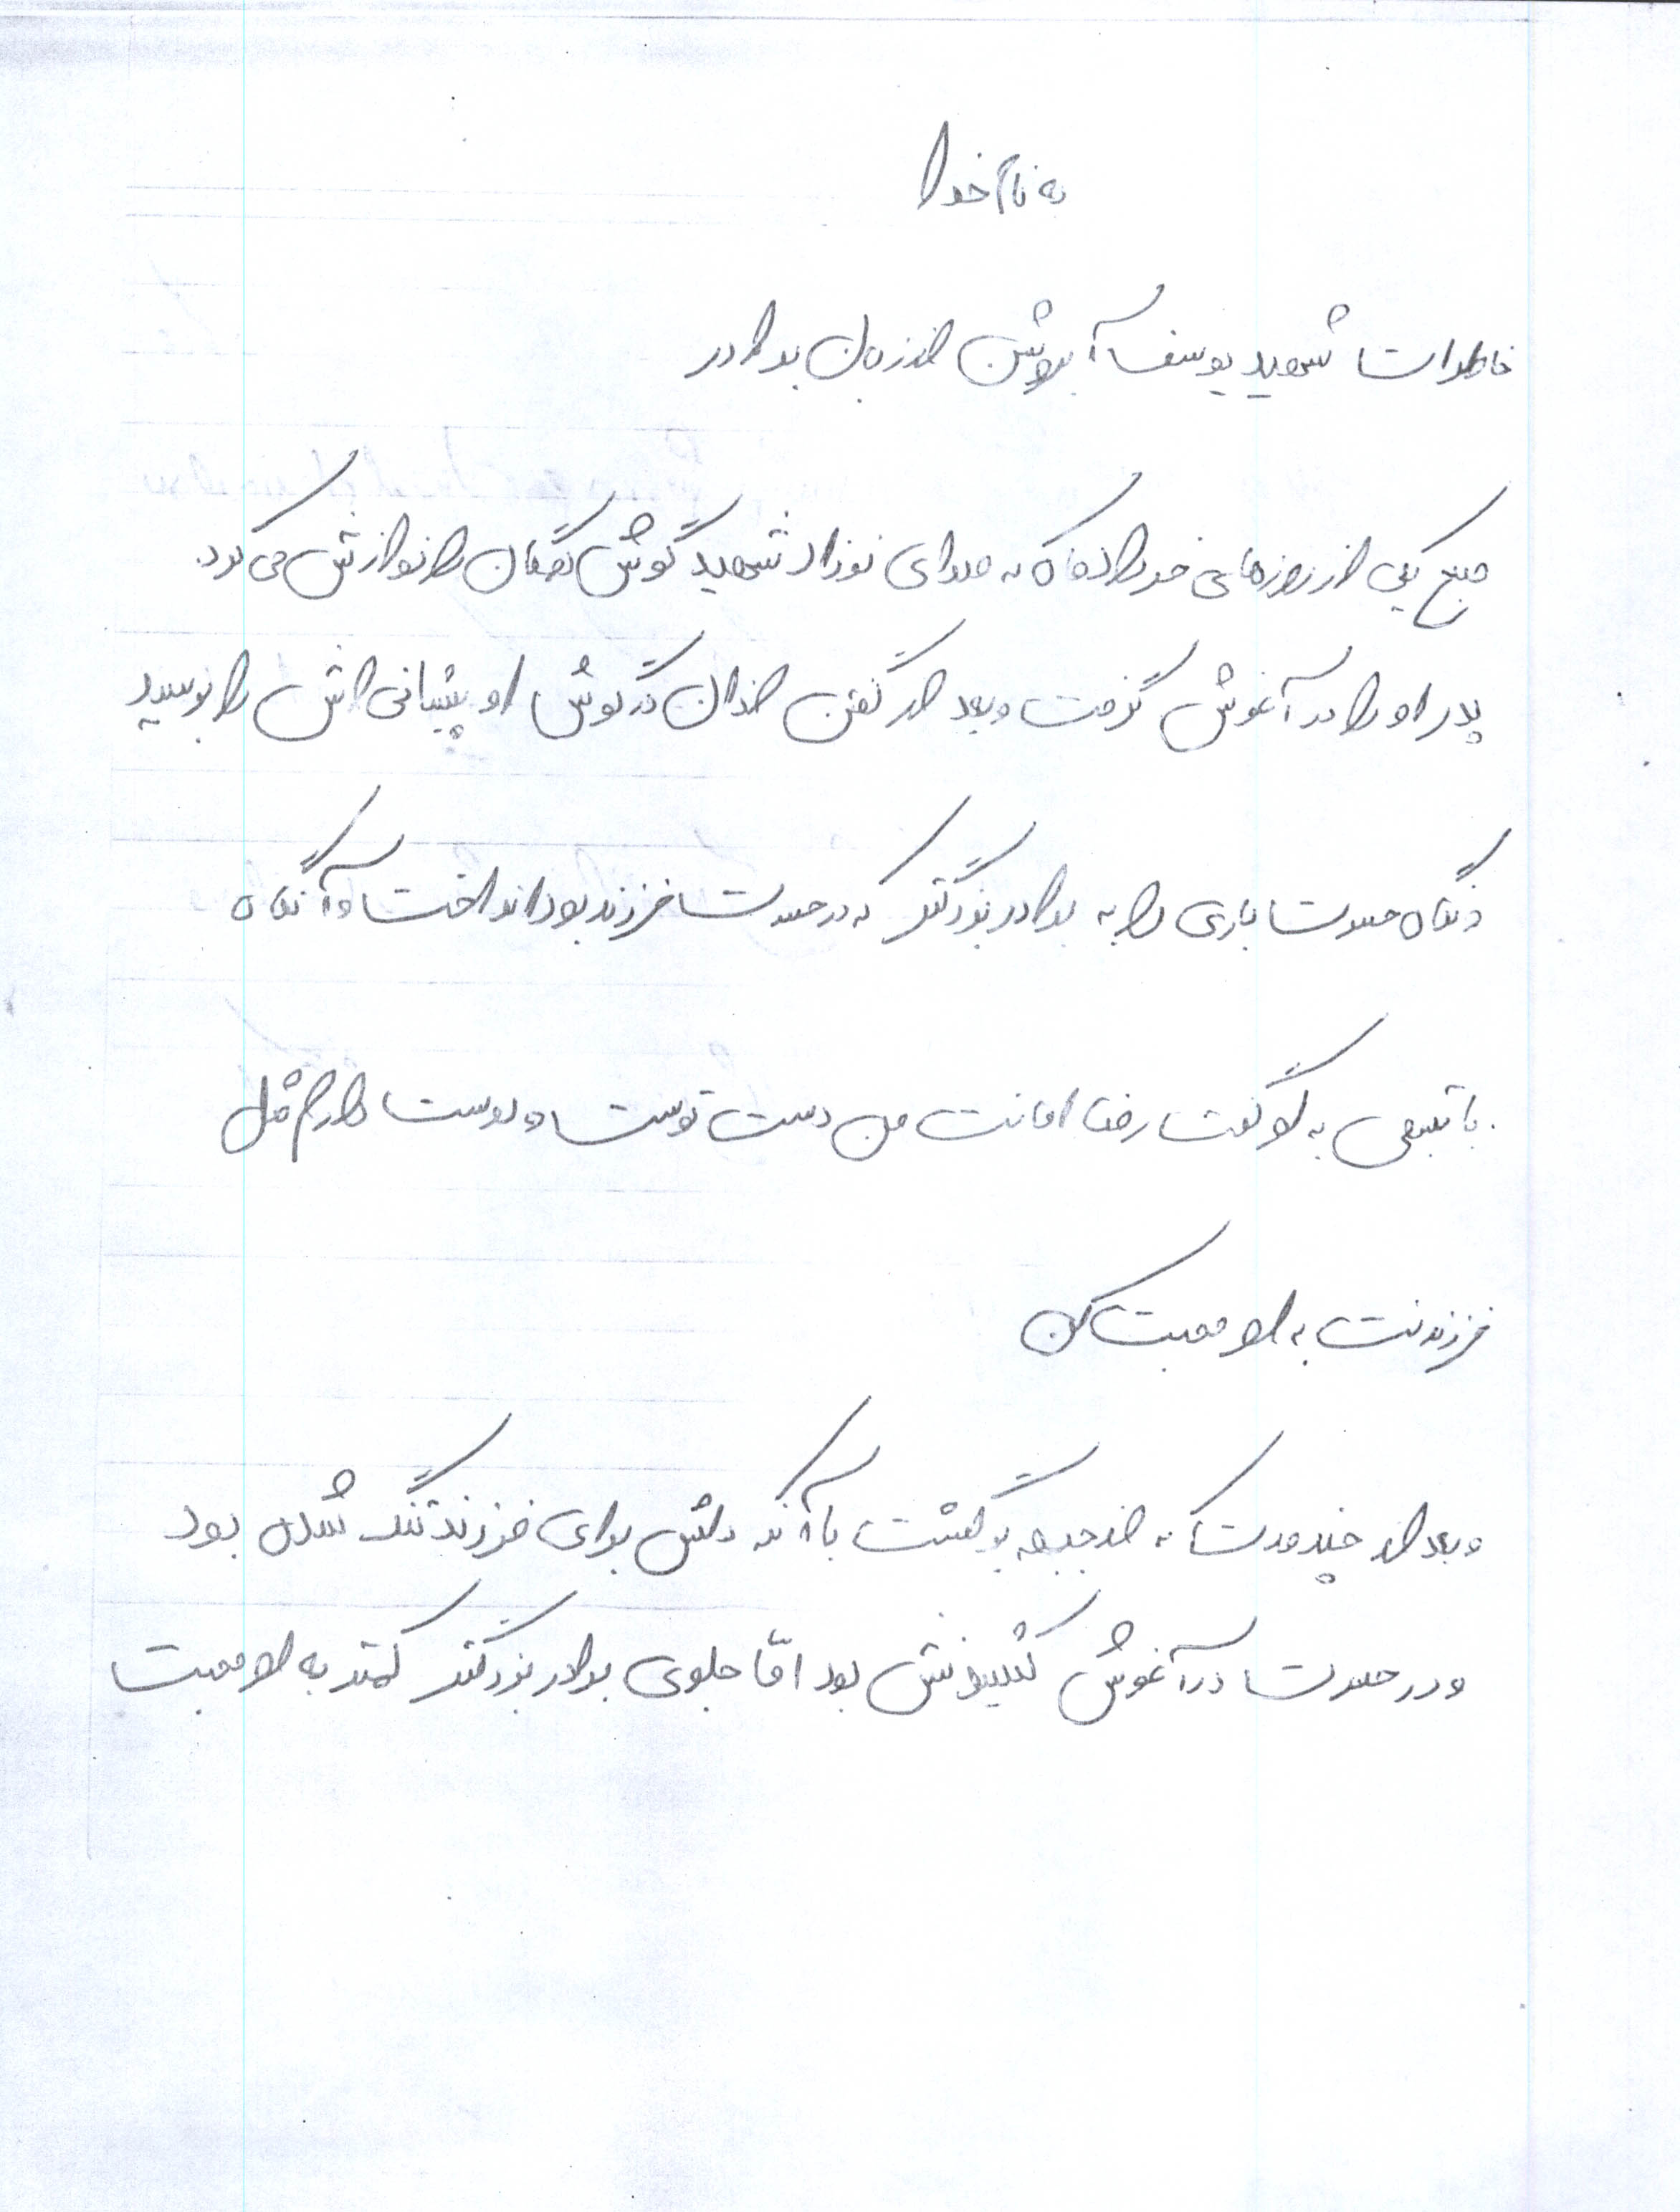 به نام خدا
خاطرات شهید یوسف آبروشن از زبان برادر
صبح یکی از روزهای خرداد ماه که صدای نوزاد شهید گوش همگان را نوازش می کرد.
پدر او را در آغوش گرفت و بعد از گفتن اذان در گوش او پیشانی اش را بوسید
و نگاه حسرت باری را به برادر بزرگتر که در حسرت فرزند بود انداخت و آنگاه
با تبسمی به او گفت رضا امانت من دست توست و دوست دارم مثل
فرزندت به او محبت کن
و بعد از چند مدت که از جبهه برگشت با آنکه دلش برای فرزند تنگ شده بود
و در حسرت در آغوش کشیدنش بود امّا جلوی برادر بزرگتر کمتر به او محبت